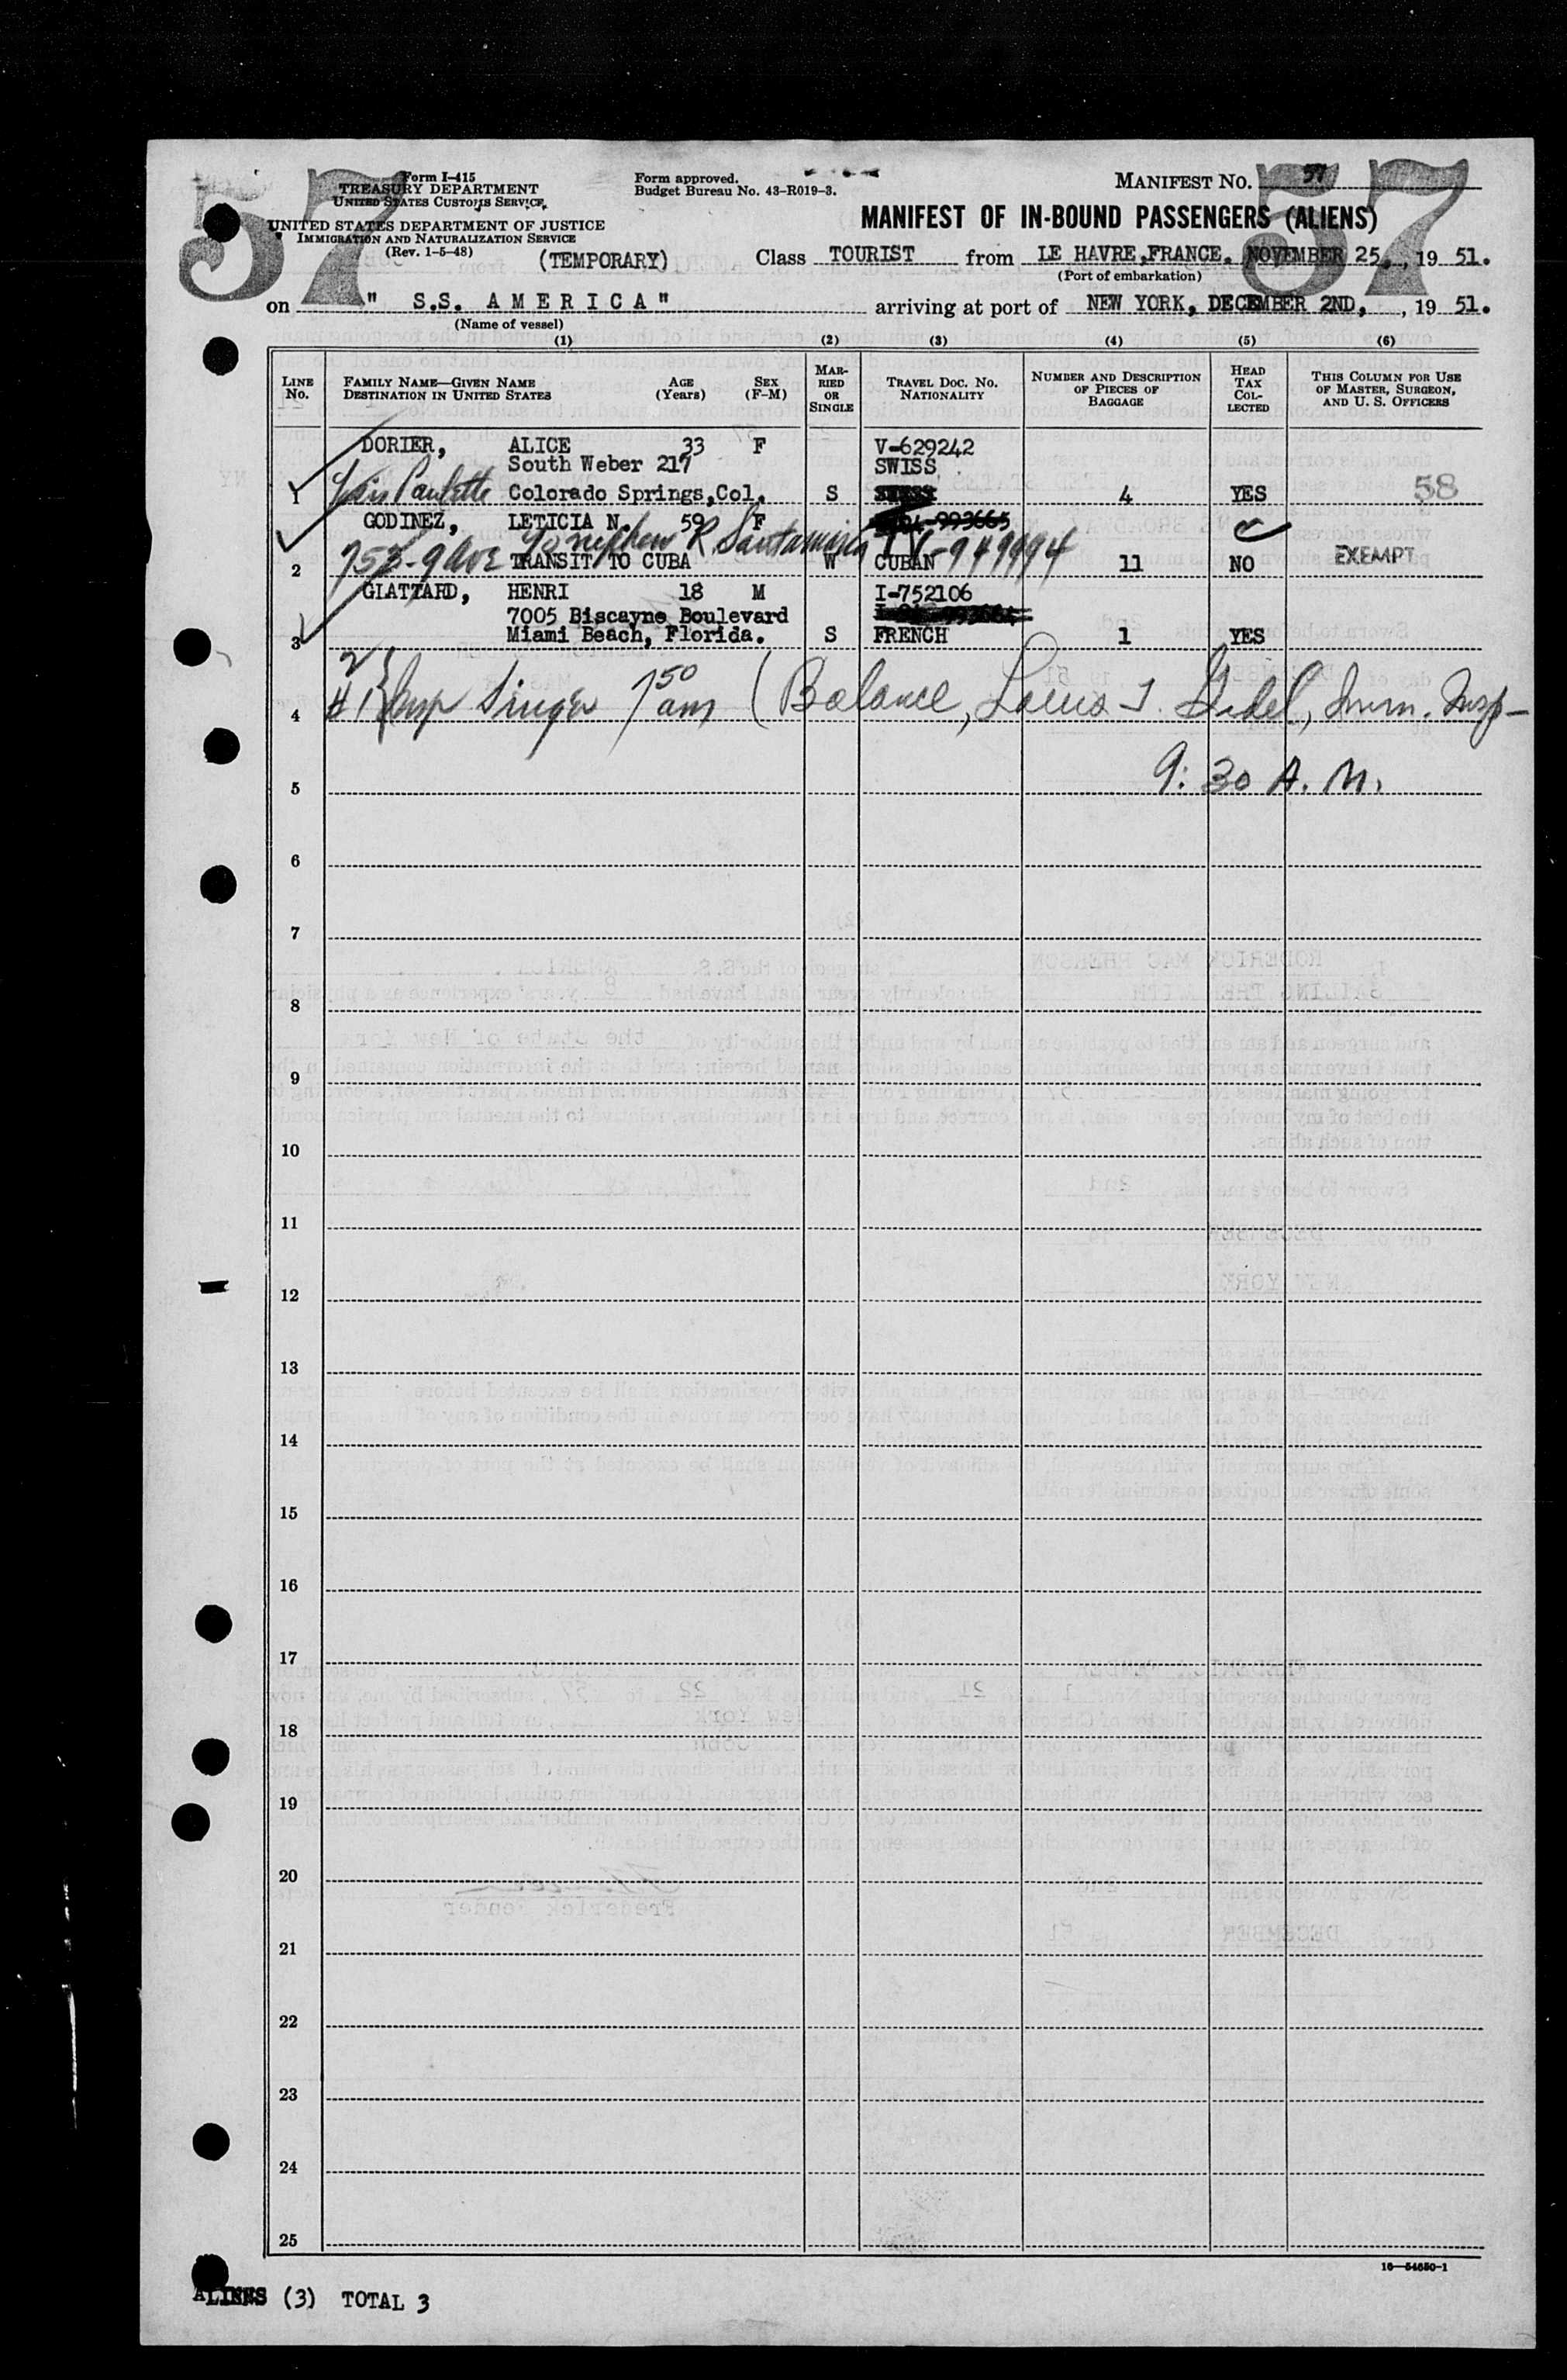 57 57
Form I-415
TREASURY DEPARTMENT
UNITED STATES CUSTOMS SERVICE
UNITED STATES DEPARTMENT OF JUSTICE
IMMIGRATION AND NATURALIZATION SERVICE
(Rev. 1-5-48)
(TEMPORARY)
Form approved.
Budget Bureau No. 43-R019-3.
MANIFEST NO. 57
MANIFEST OF IN-BOUND PASSENGERS (ALIENS)
Class TOURIST from LE HAVRE, FRANCE. NOVEMBER 25, , 19 51.
(Port of embarkation)
on " S.S. AMERICA" arriving at port of NEW YORK, DECEMBER 2ND, , 19 51.
(Name of vessel)
(1) (2) (3) (4) (5) (6)
LINE No. FAMILY NAME—GIVEN NAME DESTINATION IN UNITED STATES AGE (Years) SEX (F-M) MARRIED OR SINGLE TRAVEL DOC. NO. NATIONALITY NUMBER AND DESCRIPTION OF PIECES OF BAGGAGE HEAD TAX COLLECTED THIS COLUMN FOR USE OF MASTER, SURGEON, AND U. S. OFFICERS
DORIER, ALICE 33 F V-629242
South Weber 217 SWISS
1 Paulette Colorado Springs, Col. S 4 YES 58
GODINEZ, LETICIA N. 59 F 993665
753-9 Ave nephew R. Santamaria TV-949994
2 TRANSIT TO CUBA W CUBAN 11 NO EXEMPT
GLATTARD, HENRI 18 M I-752106
7005 Biscayne Boulevard
3 Miami Beach, Florida. S FRENCH 1 YES
4 #1 Insp Singer 7 50 am (Balance, Louis Imm. Insp-
5 9:30 A.M.
6
7
8
9
10
11
12
13
14
15
16
17
18
19
20
21
22
23
24
25
16—54650-1
ALIENS (3) TOTAL 3